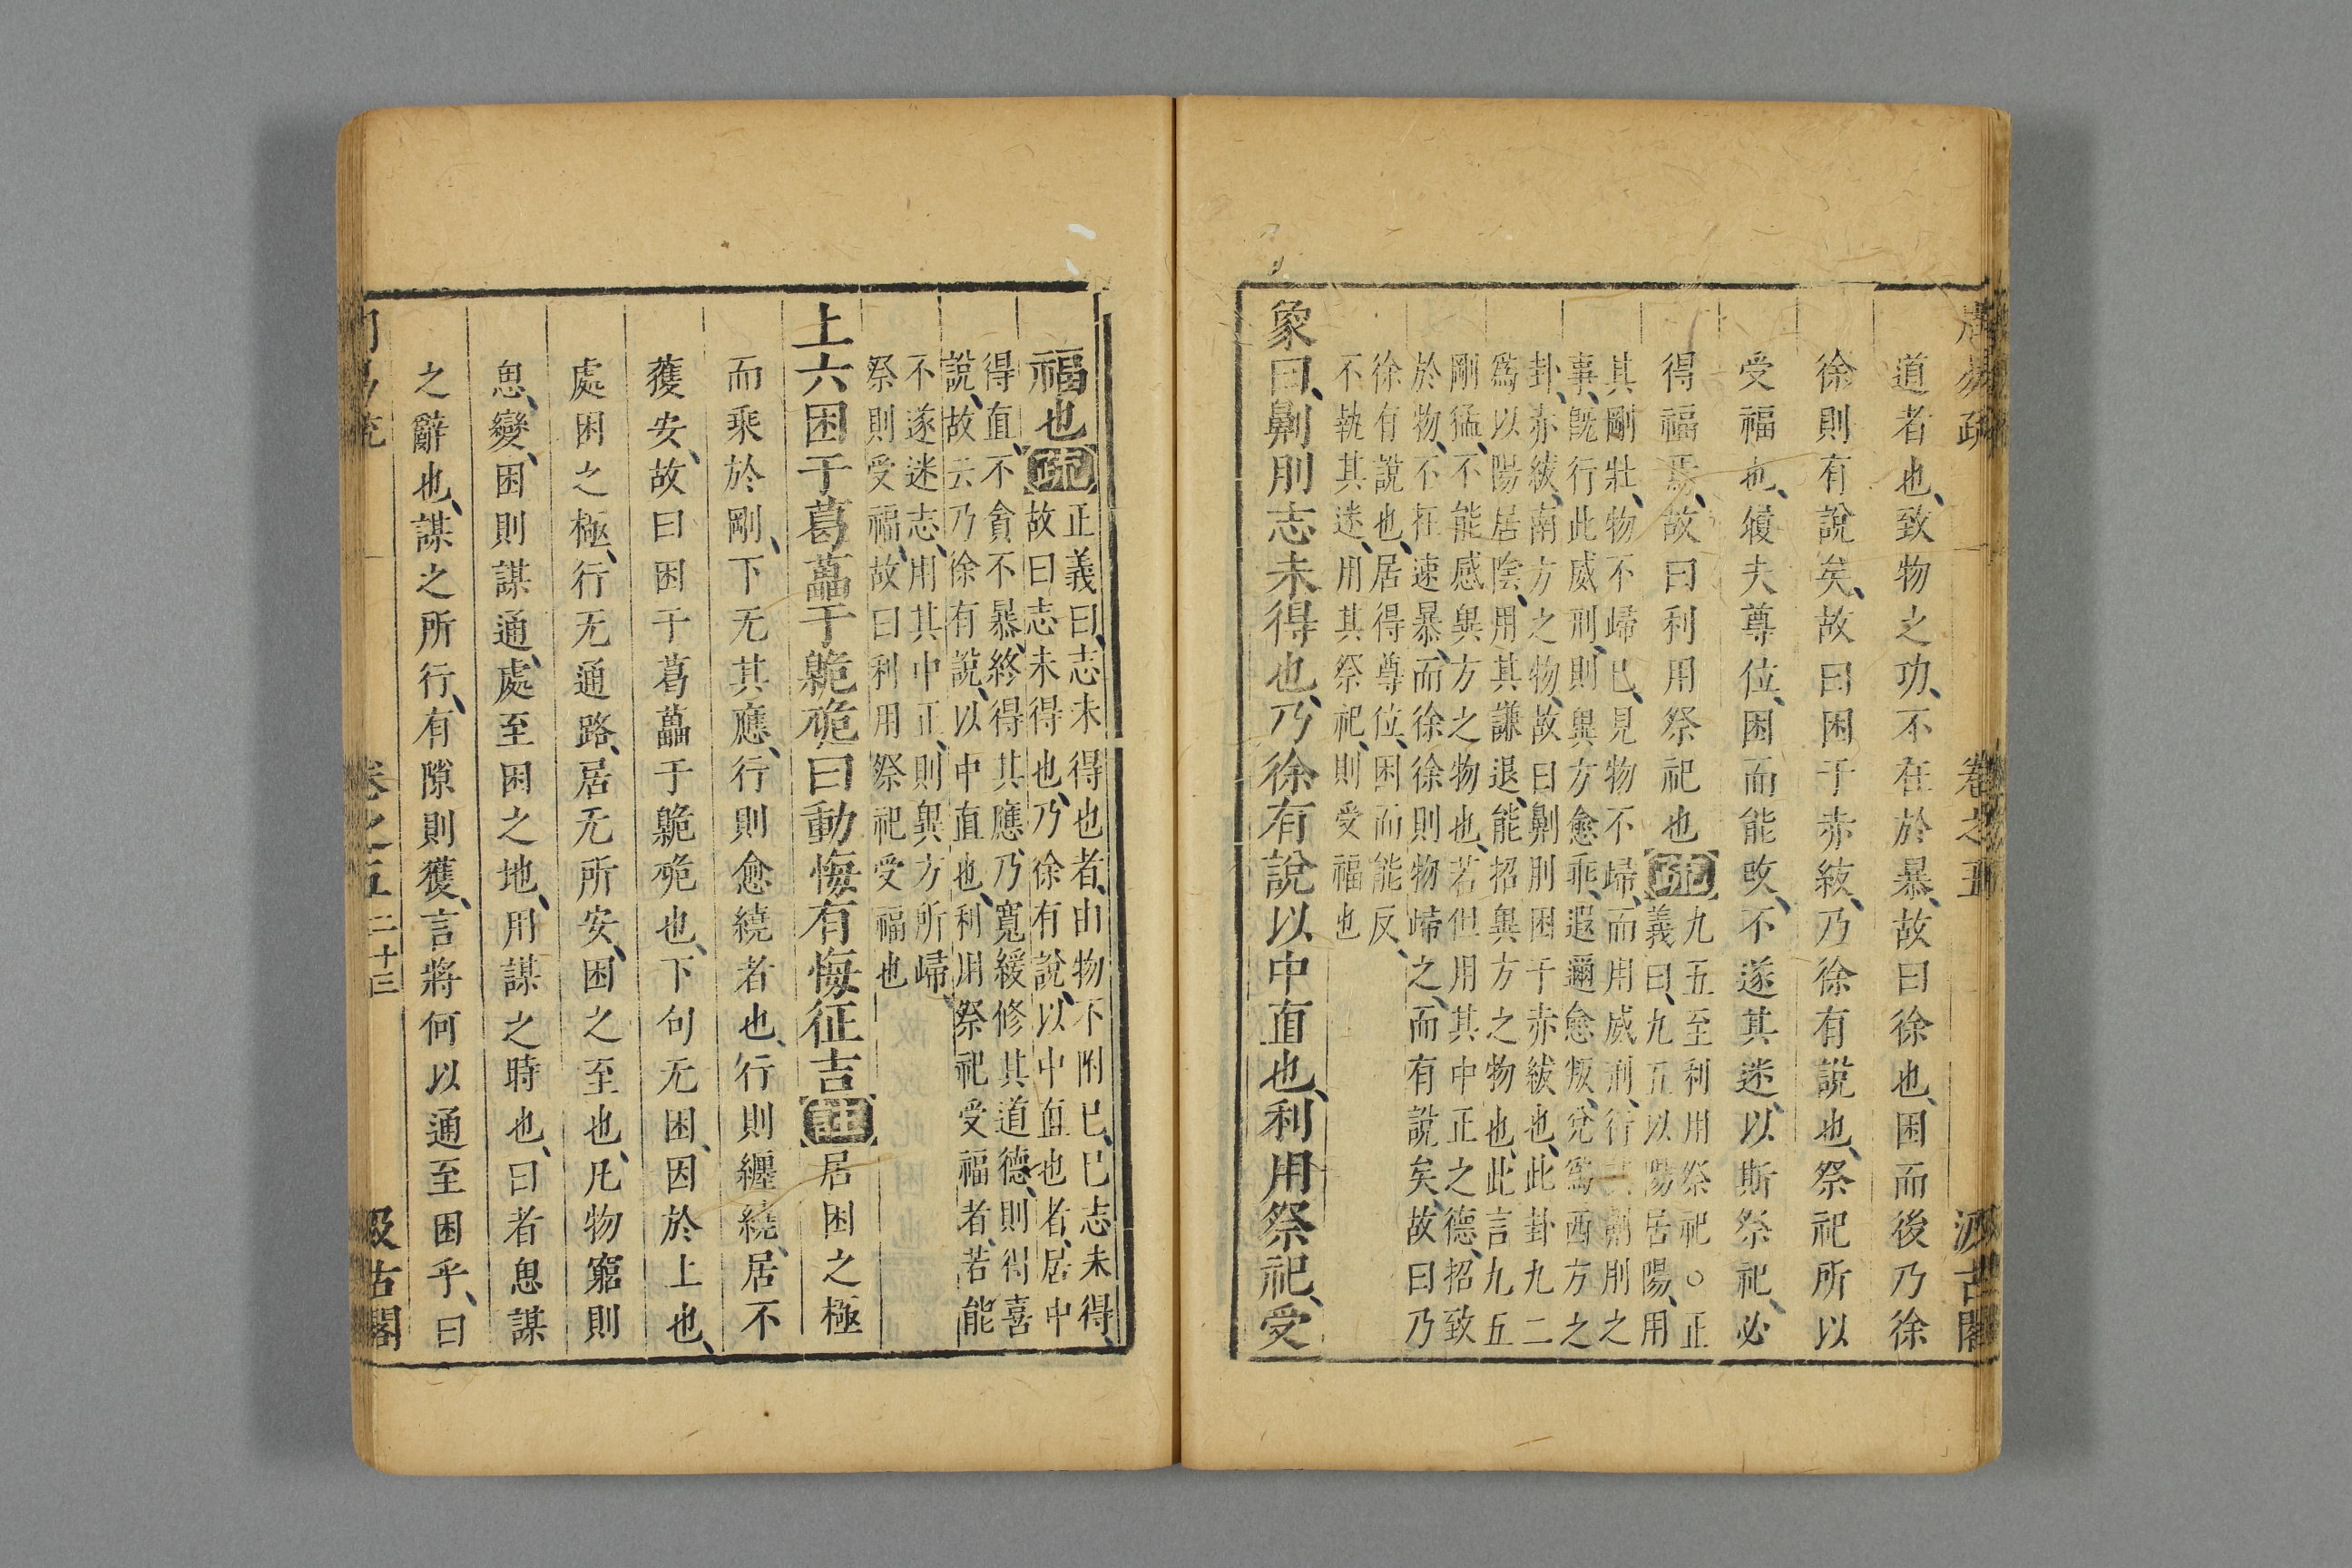 周易疏 卷之五 汲古閣
道者也致物之功不在於暴故曰徐也困而後乃徐
徐則有說矣故曰困于赤紱乃徐有說也祭祀所以
受福也履夫尊位困而能改不遂其迷以斯祭祀必
得福焉故曰利用祭祀也疏
九五至利用祭祀○正
義曰九五以陽居陽用
其剛壯物不歸已見物不歸而用威刑行其劓刖之
事既行此威刑則異方愈乖遐邇愈叛兌為西方之
卦赤紱南方之物故曰劓刖困于赤紱也此卦九二
爲以陽居陰用其謙退能招異方之物也此言九五
剛猛不能感異方之物也若但用其中正之德招致
於物不在速暴而徐徐則物歸之而有說矣故曰乃
徐有說也居得尊位困而能反
不執其迷用其祭祀則受福也
象曰劓刖志未得也乃徐有說以中直也利用祭祀受
福也疏
正義曰志未得也者由物不附已已志未得
故曰志未得也乃徐有說以中直也者居中
得直不貪不暴終得其應乃寬緩修其道德則得喜
說故云乃徐有說以中直也利用祭祀受福者若能
不遂迷志用其中正則異方所歸
祭則受福故曰利用祭祀受福也
上六困于葛藟于臲卼曰動悔有悔征吉註居困之極
而乘於剛下无其應行則愈繞者也行則纏繞居不
獲安故曰困于葛藟于臲卼也下句无困因於上也
處困之極行无通路居无所安困之至也凡物窮則
思變困則謀通處至困之地用謀之時也曰者思謀
之辭也謀之所行有隙則獲言將何以通至困乎曰
卷之五 二十三 汲古閣